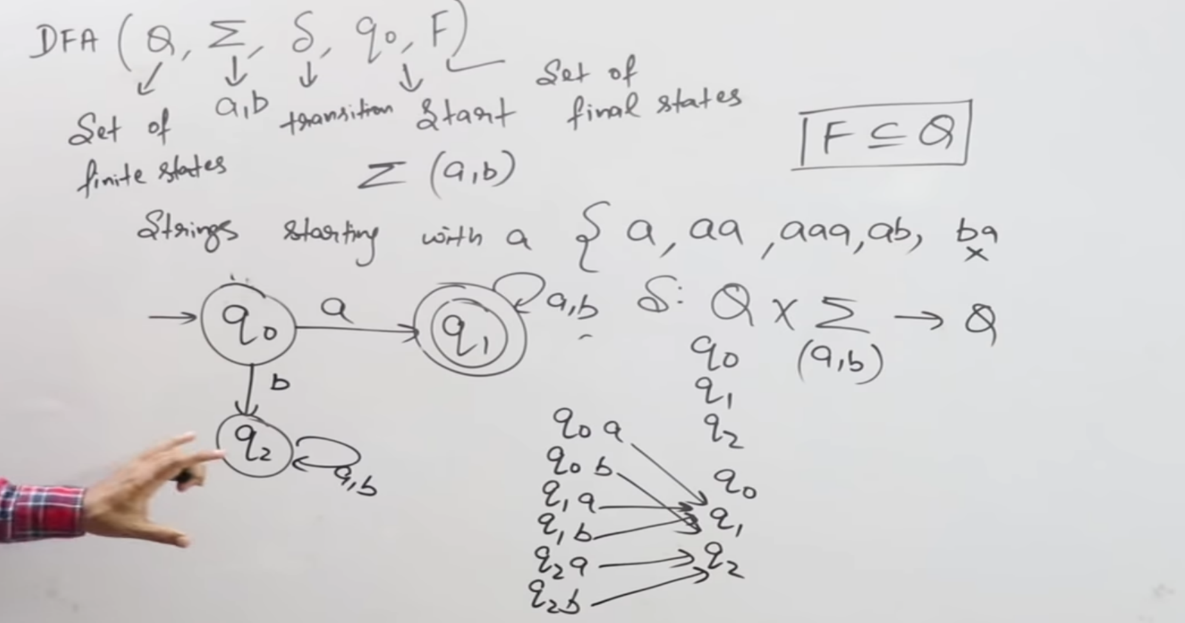 DFA (Q, Σ, δ, q0, F)
Set of finite states
a,b
transition
Start
Set of final states
F ⊆ Q
Σ (a,b)
Strings starting with a { a, aa, aaa, ab, ba
x
q0
a
q1
a,b
b
q2
a,b
δ: Q × Σ → Q
q0
(a,b)
q1
q2
q0 a
q0 b
q1 a
q1 b
q2 a
q2 b
q0
q1
q2